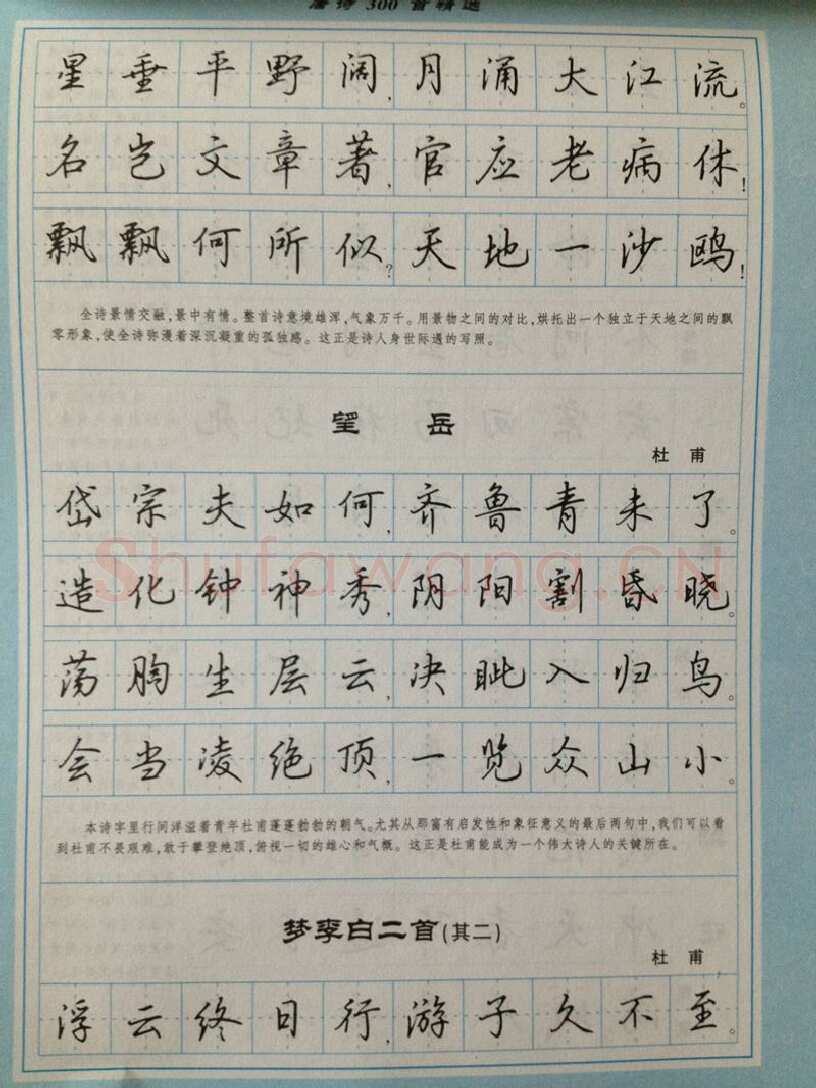 唐诗300首精选
星垂平野阔,月涌大江流。
名岂文章著,官应老病休!
飘飘何所似?天地一沙鸥!
全诗景情交融,景中有情。整首诗意境雄浑,气象万千。用景物之间的对比,烘托出一个独立于天地之间的飘
零形象,使全诗弥漫着深沉凝重的孤独感。这正是诗人身世际遇的写照。
望 岳
杜 甫
岱宗夫如何,齐鲁青未了。
造化钟神秀,阴阳割昏晓。
荡胸生层云,决眦入归鸟。
会当凌绝顶,一览众山小。
本诗字里行间洋溢着青年杜甫蓬蓬勃勃的朝气。尤其从那富有启发性和象征意义的最后两句中,我们可以看
到杜甫不畏艰难,敢于攀登绝顶,俯视一切的雄心和气概。这正是杜甫能成为一个伟大诗人的关键所在。
梦李白二首(其二)
杜 甫
浮云终日行,游子久不至。
Shufawang.CN